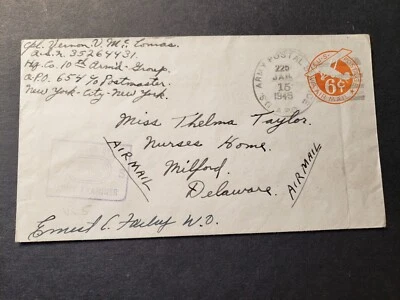 Cpl. Vernon V. Mc Comas
A.S.N. 35264431.
Hq. Co. 10th Arm'd- Group
A.P.O. 654 c/o Postmaster.
New York- City- New York.
U.S. ARMY POSTAL
225
JAN
15
1945
6¢
Miss Thelma Taylor.
Nurses Home.
Milford.
Delaware.
AIR MAIL
AIR MAIL
Ernest C. W.O.